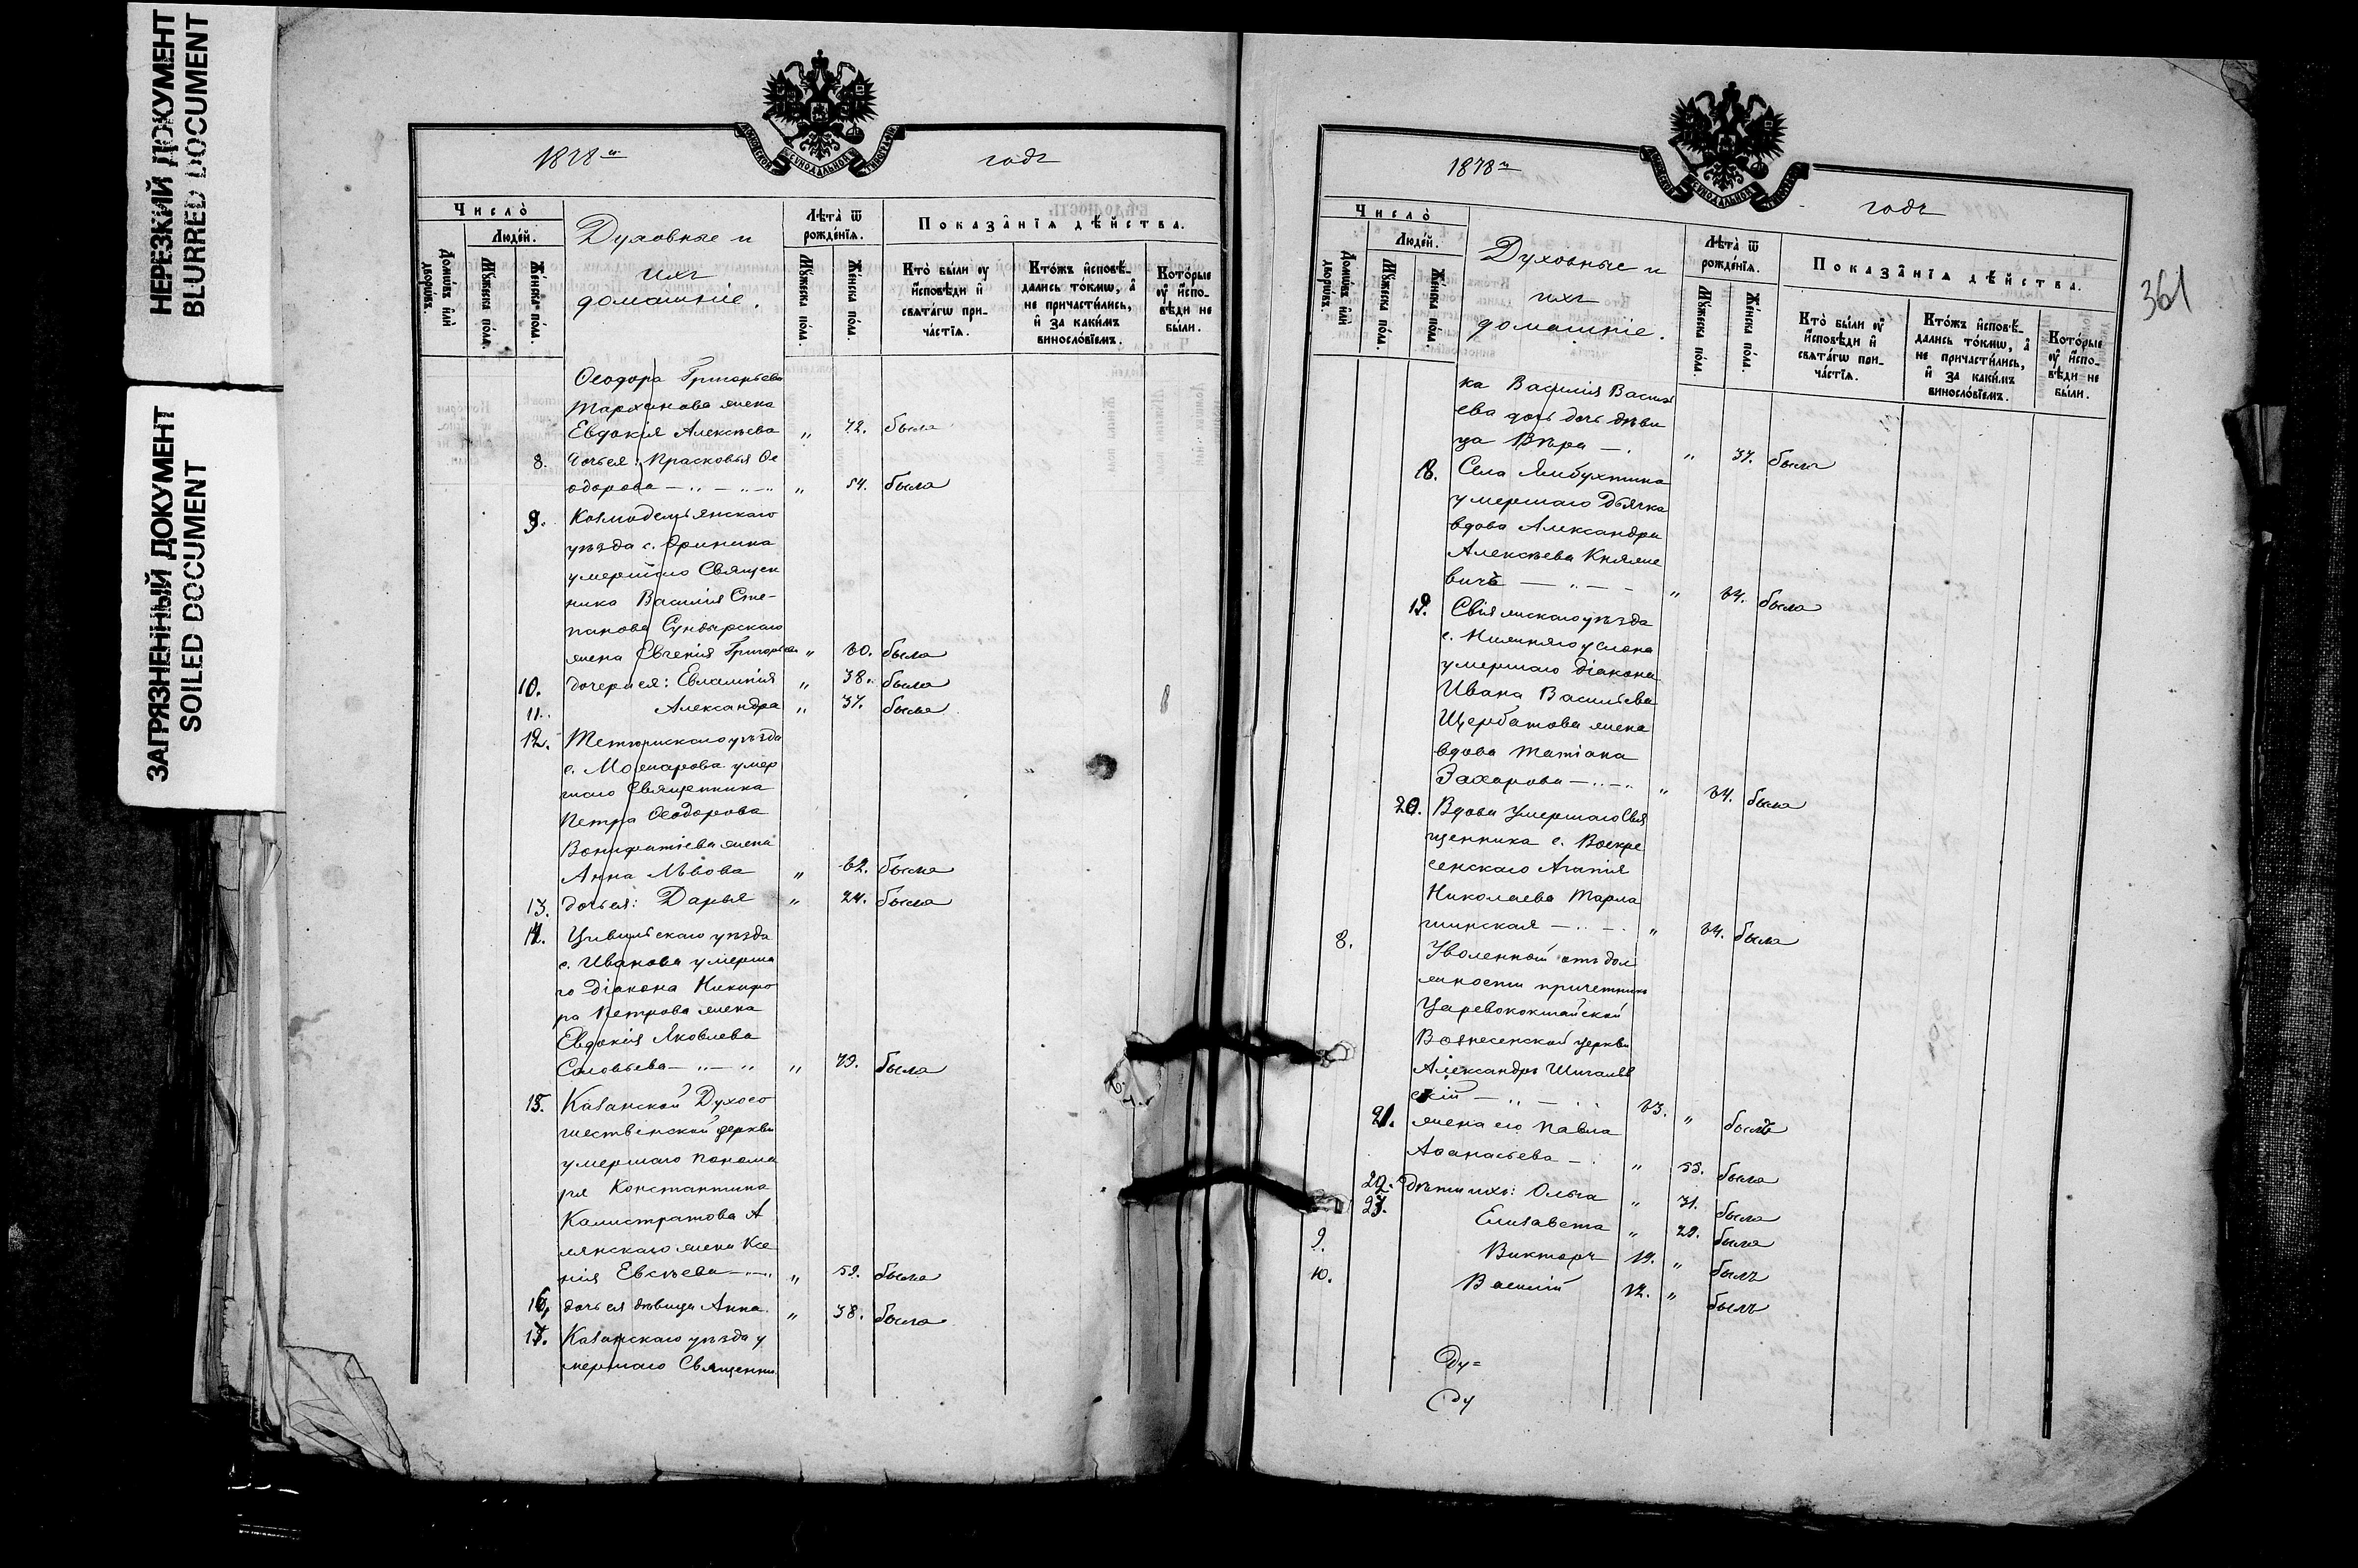 НЕРЕЗКИЙ ДОКУМЕНТ
BLURRED DOCUMENT
ЗАГРЯЗНЕННЫЙ ДОКУМЕНТ
SOILED DOCUMENT
МОСКОВСКОЙ СѴНОДАЛЬНОЙ ТИПОГРАФІИ
1878 й годъ
Число̀
Люде́й.
Домѡ́въ и҆лѝ дворѡ́въ.
Мꙋ́жеска по́ла.
Же́нска по́ла.
Духовные и
ихъ
домашніе.
Лѣта̀ ѿ рожде́нїѧ.
Мꙋ́жеска по́ла.
Же́нска по́ла.
Показа̑нїѧ дѣ́йства.
Кто̀ бы́ли ᲂу҆ и҆́сповѣди и҆ свѧта́гѡ прича́стїѧ.
Кто́жъ и҆сповѣ́дались то́кмѡ, а҆ не причасти́лись, и҆ за каки́мъ винословїемъ.
Кото́рые ᲂу҆ и҆́сповѣди не бы́ли.
Ѳеодора Григорьева
Тарханова жена
Евдокія Алексѣева " 72. была
8. дочь ея: Прасковья Ѳе
одорова " 54. была
9. Козмодемьянскаго
уѣзда с. Оринина
умершаго Священ
ника Василія Сте-
панова Сундырскаго
жена Евгенія Григорьева " 60. была
10. дочери ея: Евлампія " 38. была
11. Александра " 37. была
12. Тетюшскаго уѣзда
с. Можарова умер
шаго Священника
Петра Ѳеодорова
Вонифатіева жена
Анна Львова " 62. была
13. дочь ея: Дарья " 24. была
14. Цивильскаго уѣзда
с. Иванова умерша
го Діакона Никифо
ра Петрова жена
Евдокія Яковлева
Соловьева " 79. была
15. Казанской Духосо
шественской церкви
умершаго Понома
ря Константина
Калистратова А
лянскаго жена Ксе
нія Евсѣева " 59. была
16. дочь ея дѣвица Анна " 38. была
17. Казанскаго уѣзда у
мершаго Священни
361
МОСКОВСКОЙ СѴНОДАЛЬНОЙ ТИПОГРАФІИ
1878 й годъ
Число̀
Люде́й.
Домѡ́въ и҆лѝ дворѡ́въ.
Мꙋ́жеска по́ла.
Же́нска по́ла.
Духовные и
ихъ
домашніе.
Лѣта̀ ѿ рожде́нїѧ.
Мꙋ́жеска по́ла.
Же́нска по́ла.
Показа̑нїѧ дѣ́йства.
Кто̀ бы́ли ᲂу҆ и҆́сповѣди и҆ свѧта́гѡ прича́стїѧ.
Кто́жъ и҆сповѣ́дались то́кмѡ, а҆ не причасти́лись, и҆ за каки́мъ винословїемъ.
Кото́рые ᲂу҆ и҆́сповѣди не бы́ли.
ка Василія Василь
ева дочь дѣви
ца Вѣра " 37. была
18. Села Ямбухтина
умершаго Дьячка
вдова Александра
Алексѣева Княже
вичъ " 64. была
19. Свіяжскаго уѣзда
с. Нижняго услона
умершаго Діакона
Ивана Васильева
Щербатова жена
вдова Татіана
Захарова " 64. была
20. Вдова умершаго Свя
щенника с. Воскре
сенскаго Агапія
Николаева Тарла
шинская " 64. была
8. Уволенной отъ дол
жности причетникъ
Царевококшайской
Вознесенской церкви
Александръ Шигалев
скій 63. " былъ
21. жена его Павла
Аѳанасьева " 55. была
22. Дѣти ихъ: Ольга " 31. была
23. Елизавета " 29. была
9. Викторъ 19. " былъ
10. Василій 12. " былъ
Ду=
Ду